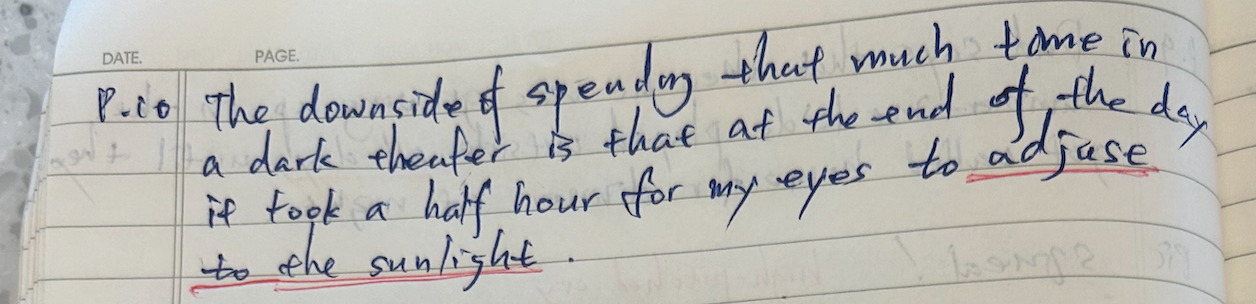 DATE. PAGE.
P.10 The downside of spending that much time in
a dark theater is that at the end of the day
it took a half hour for my eyes to adjust
to the sunlight.